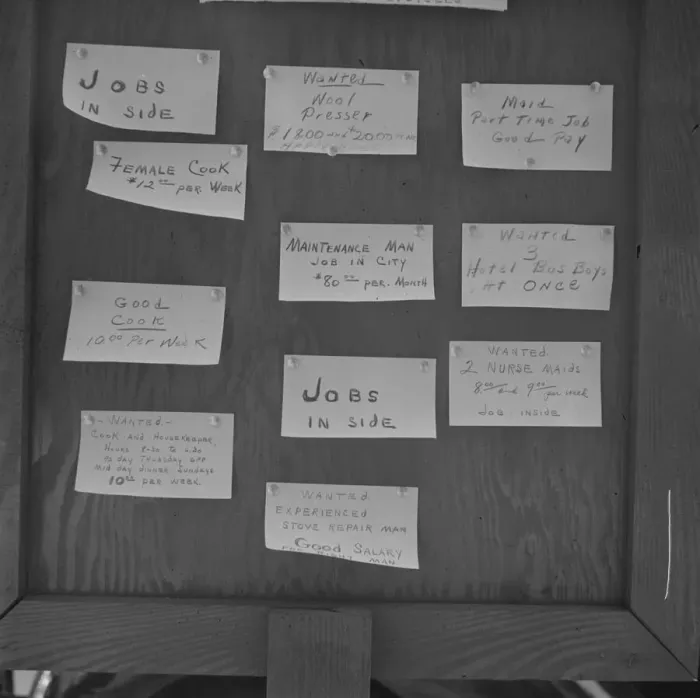 JOBS
IN SIDE
Wanted
Wool
Presser
$1800 and $2000
Maid
Part Time Job
Good Pay
FEMALE COOK
$12.00 PER WEEK
MAINTENANCE MAN
JOB IN CITY
$80.00 PER. MONTH
Wanted
3
Hotel Bus Boys
At ONCE
GOOD
COOK
10.00 PER WEEK
JOBS
IN SIDE
WANTED
2 NURSE MAIDS
8.00 and 9.00 per week
JOB INSIDE
-WANTED-
COOK AND HOUSEKEEPER,
HOURS 8-30 TO 6.30
DAY THURSDAY OFF
MID DAY DINNER SUNDAYS
10.00 PER WEEK
WANTED
EXPERIENCED
STOVE REPAIR MAN
GOOD SALARY
MAN